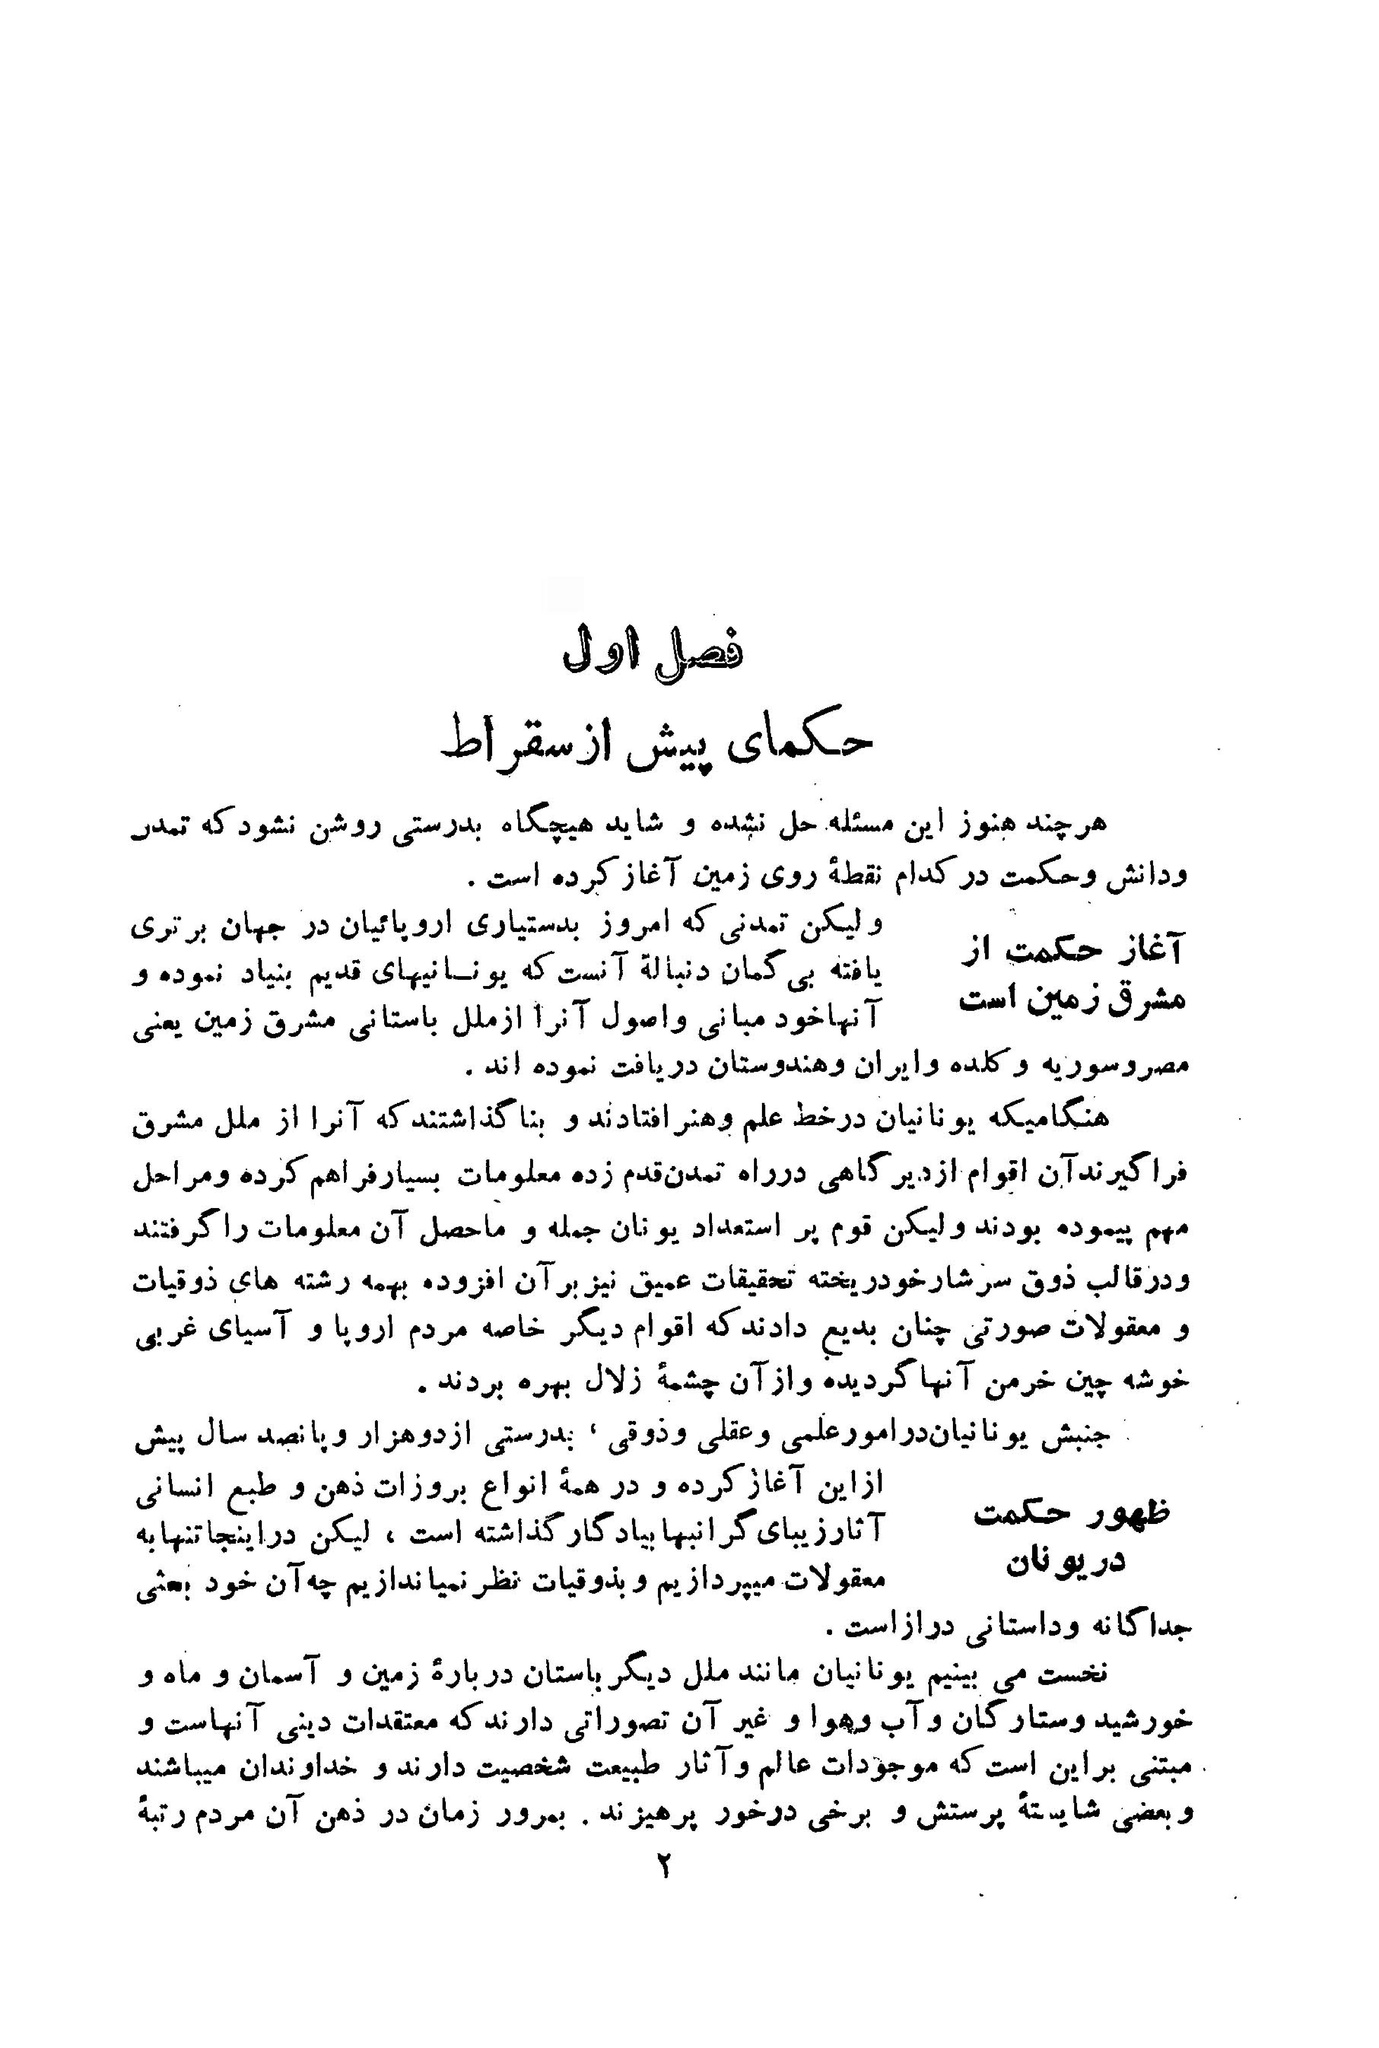 فصل اول
حکمای پیش از سقراط
هرچند هنوز این مسئله حل نشده و شاید هیچگاه بدرستی روشن نشود که تمدن
ودانش وحکمت در کدام نقطهٔ روی زمین آغاز کرده است .
آغاز حکمت از
مشرق زمین است
ولیکن تمدنی که امروز بدستیاری اروپائیان در جهان برتری
یافته بی‌گمان دنبالهٔ آنست که یونانیهای قدیم بنیاد نموده و
آنها خود مبانی واصول آنرا از ملل باستانی مشرق زمین یعنی
مصر وسوریه و کلده وایران وهندوستان دریافت نموده اند .
هنگامیکه یونانیان در خط علم وهنر افتادند و بنا گذاشتند که آنرا از ملل مشرق
فراگیرند آن اقوام از دیر گاهی درراه تمدن قدم زده معلومات بسیار فراهم کرده ومراحل
مهم پیموده بودند ولیکن قوم پر استعداد یونان جمله و ماحصل آن معلومات را گرفتند
ودر قالب ذوق سرشار خود ریخته تحقیقات عمیق نیز بر آن افزوده بهمه رشته های ذوقیات
و معقولات صورتی چنان بدیع دادند که اقوام دیگر خاصه مردم اروپا و آسیای غربی
خوشه چین خرمن آنها گردیده واز آن چشمهٔ زلال بهره بردند .
جنبش یونانیان در امور علمی وعقلی وذوقی ، بدرستی از دوهزار وپانصد سال پیش
ظهور حکمت
در یونان
ازاین آغاز کرده و در همهٔ انواع بروزات ذهن و طبع انسانی
آثار زیبای گرانبها بیادگار گذاشته است ، لیکن در اینجا تنها به
معقولات میپردازیم وبذوقیات نظر نمیاندازیم چه آن خود بحثی
جداگانه وداستانی دراز است .
نخست می بینیم یونانیان مانند ملل دیگر باستان دربارهٔ زمین و آسمان و ماه و
خورشید وستارگان وآب وهوا و غیر آن تصوراتی دارند که معتقدات دینی آنهاست و
مبتنی براین است که موجودات عالم وآثار طبیعت شخصیت دارند و خداوندان میباشند
وبعضی شایستهٔ پرستش و برخی درخور پرهیزند . بمرور زمان در ذهن آن مردم رتبهٔ
۲